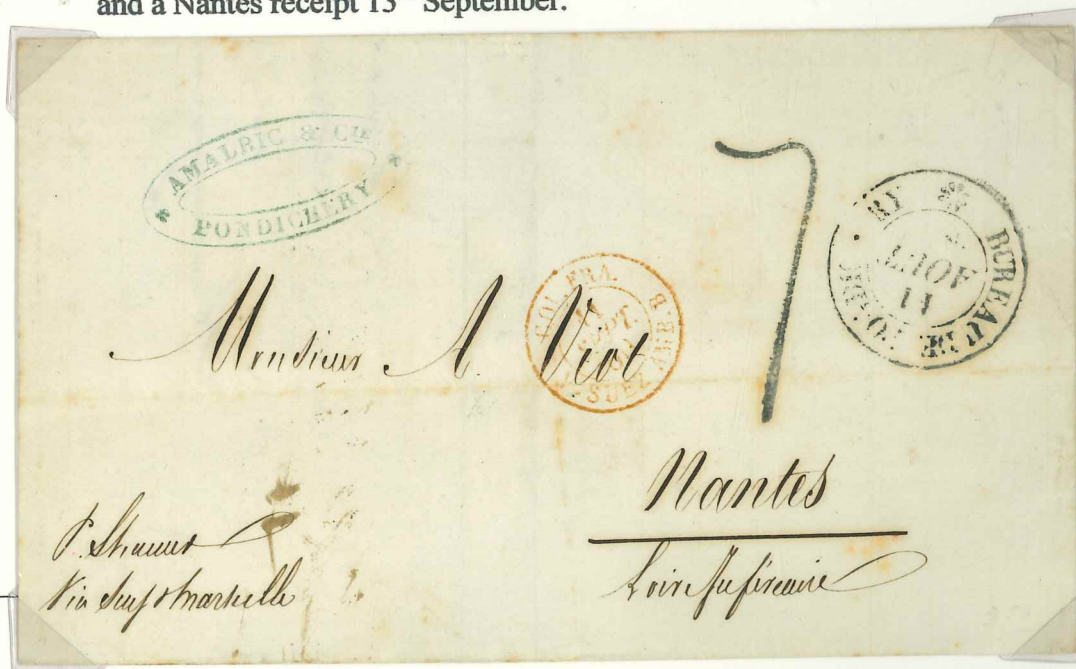 and a Nantes receipt 13th September.
AMALRIC & CIE
PONDICHERY
7
BUREAU DE
RY
AOUT
11
COL. FRA.
SEPT.
SUEZ AMB. B
Monsieur A. Viot
Nantes
Loire Inférieure
P. Steamer
Via Suez & Marseille